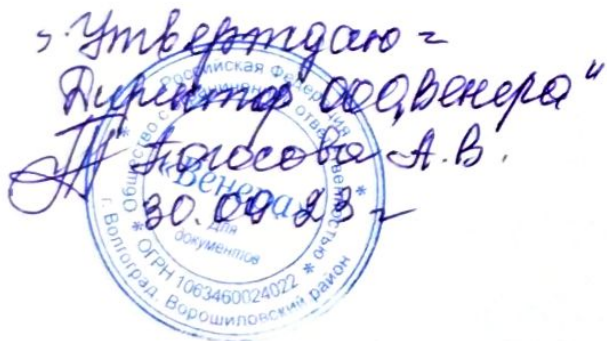 „Утверждаю"
Директор ООО „Венера"
Погосова А.В.
30.09 23 г
Российская Федерация
Общество с ограниченной ответственностью
«Венера»
Для
документов
* ОГРН 1063460024022 *
г. Волгоград, Ворошиловский район